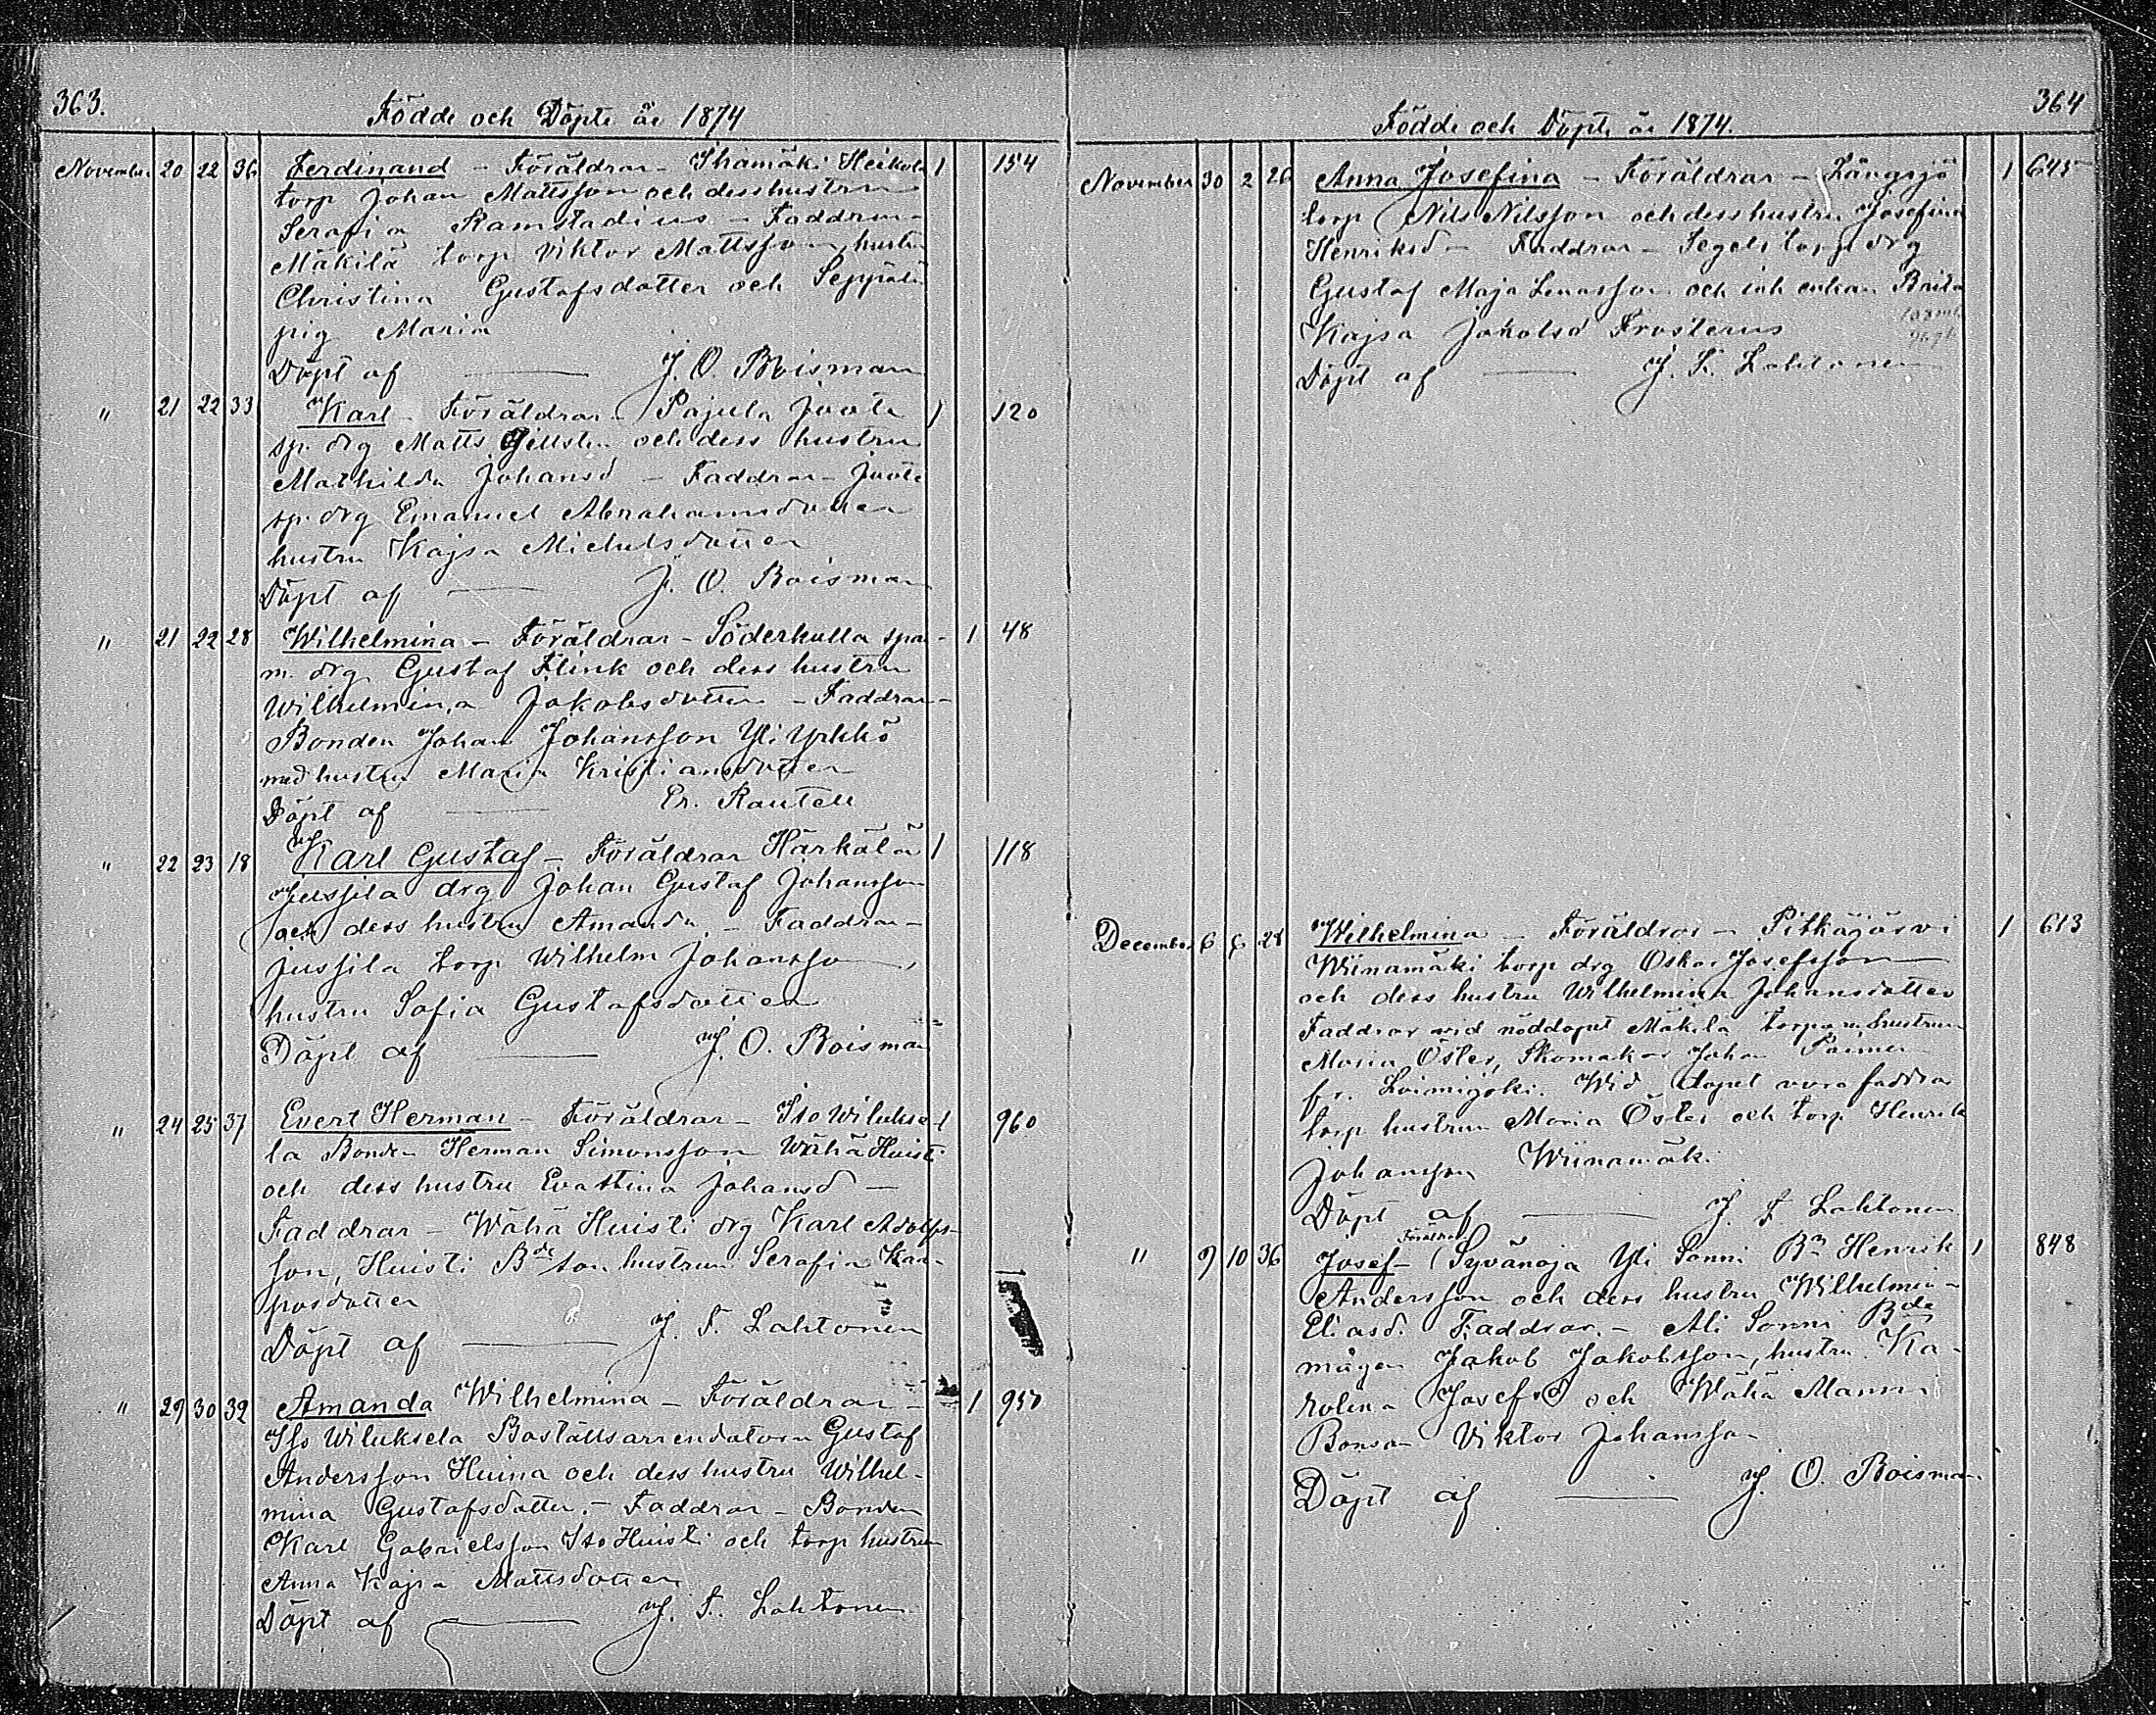 363.
Födde och Döpte år 1874
November 20 22 36 Ferdinand – Föräldrar – Ihamäki Heikola 1 154
torp Johan Mattsson och dess hustru
Serafia Ramstadius – Faddrar –
Mäkilä torp Viktor Mattsson, hustru
Christina Gustafsdotter och Seppälä
pig Maria
Döpt af — J. O. Roisman
" 21 22 33 Karl – Föräldrar – Pajula Juote 1 120
sp. drg Matts och dess hustru
Mathilda Johansd – Faddrar – Juote
sp. drg Emanuel Abrahamsdotter
hustru Kajsa Michelsdotter
Döpt af — J. O. Roisman
" 21 22 28 Wilhelmina – Föräldrar – Söderkulla spa- 1 48
m. drg Gustaf Flink och dess hustru
Wilhelmina Jakobsdotter – Faddrar –
Bonden Johan Johansson Yli Yrkkö
med hustru Maria Kristiansdotter
Döpt af — Er. Rautell
" 22 23 18 Karl Gustaf – Föräldrar Härkälä 1 118
Jussila drg Johan Gustaf Johansson
och dess hustru Amanda – Faddrar –
Jussila torp Wilhelm Johansson,
hustru Sofia Gustafsdotter
Döpt af — J. O. Roisman
" 24 25 37 Evert Herman – Föräldrar – Iso Wilukse- 1 960
la Bonden Herman Simonsson Wähä Huisti
och dess hustru Evastina Johansd –
Faddrar – Wähä Huisti drg Karl Adolfs-
son, Huisti Bde son hustrun Serafia Kas-
parsdotter
Döpt af — J. F. Lahtonen
" 29 30 32 Amanda Wilhelmina – Föräldrar – 1 957
Iso Wiluksela Boställsarrendatorn Gustaf
Andersson Huina och dess hustru Wilhel-
mina Gustafsdotter. – Faddrar – Bonden
Karl Gabrielsson Iso Huisti och torp hustrun
Anna Kajsa Mattsdotter
Döpt af — J. F. Lahtonen
364
Födde och Döpte år 1874.
November 30 2 26 Anna Josefina – Föräldrar – Långsjö 1 645
torp Nils Nilsson och dess hustru Josefina
Henriksd – Faddrar – Segels torp drg
Gustaf Maja Lenasson och inh enkan Brita
Kajsa Jakobsd Frosterus
Döpt af — J. F. Lahtonen
December 6 6 28 Wilhelmina – Föräldrar – Pitkäjärvi 1 613
Wiinamäki torp drg Oskar Josefsson
och dess hustru Wilhelmina Johansdotter
Faddrar vid nöddopet Mäkilä torpare hustrun
Maria Öster, Skomakar Johan
fr. Loimijoki. Wid dopet voro faddrar
torp hustrun Maria Öster och torp Henrik
Johansson Wiinamäki
Döpt af — J. F. Lahtonen
" 9 10 36 Josef – Föräldrar Syvänoja Yli Sonni Bn Henrik 1 848
Andersson och dess hustru Wilhelmin-
Eliasd. Faddrar. – Ali Sonni Bde
mågen Jakob Jakobsson, hustru Ka-
rolina Josefsd och Wähä Manni
Bonson Viktor Johansson
Döpt af — J. O. Roisman